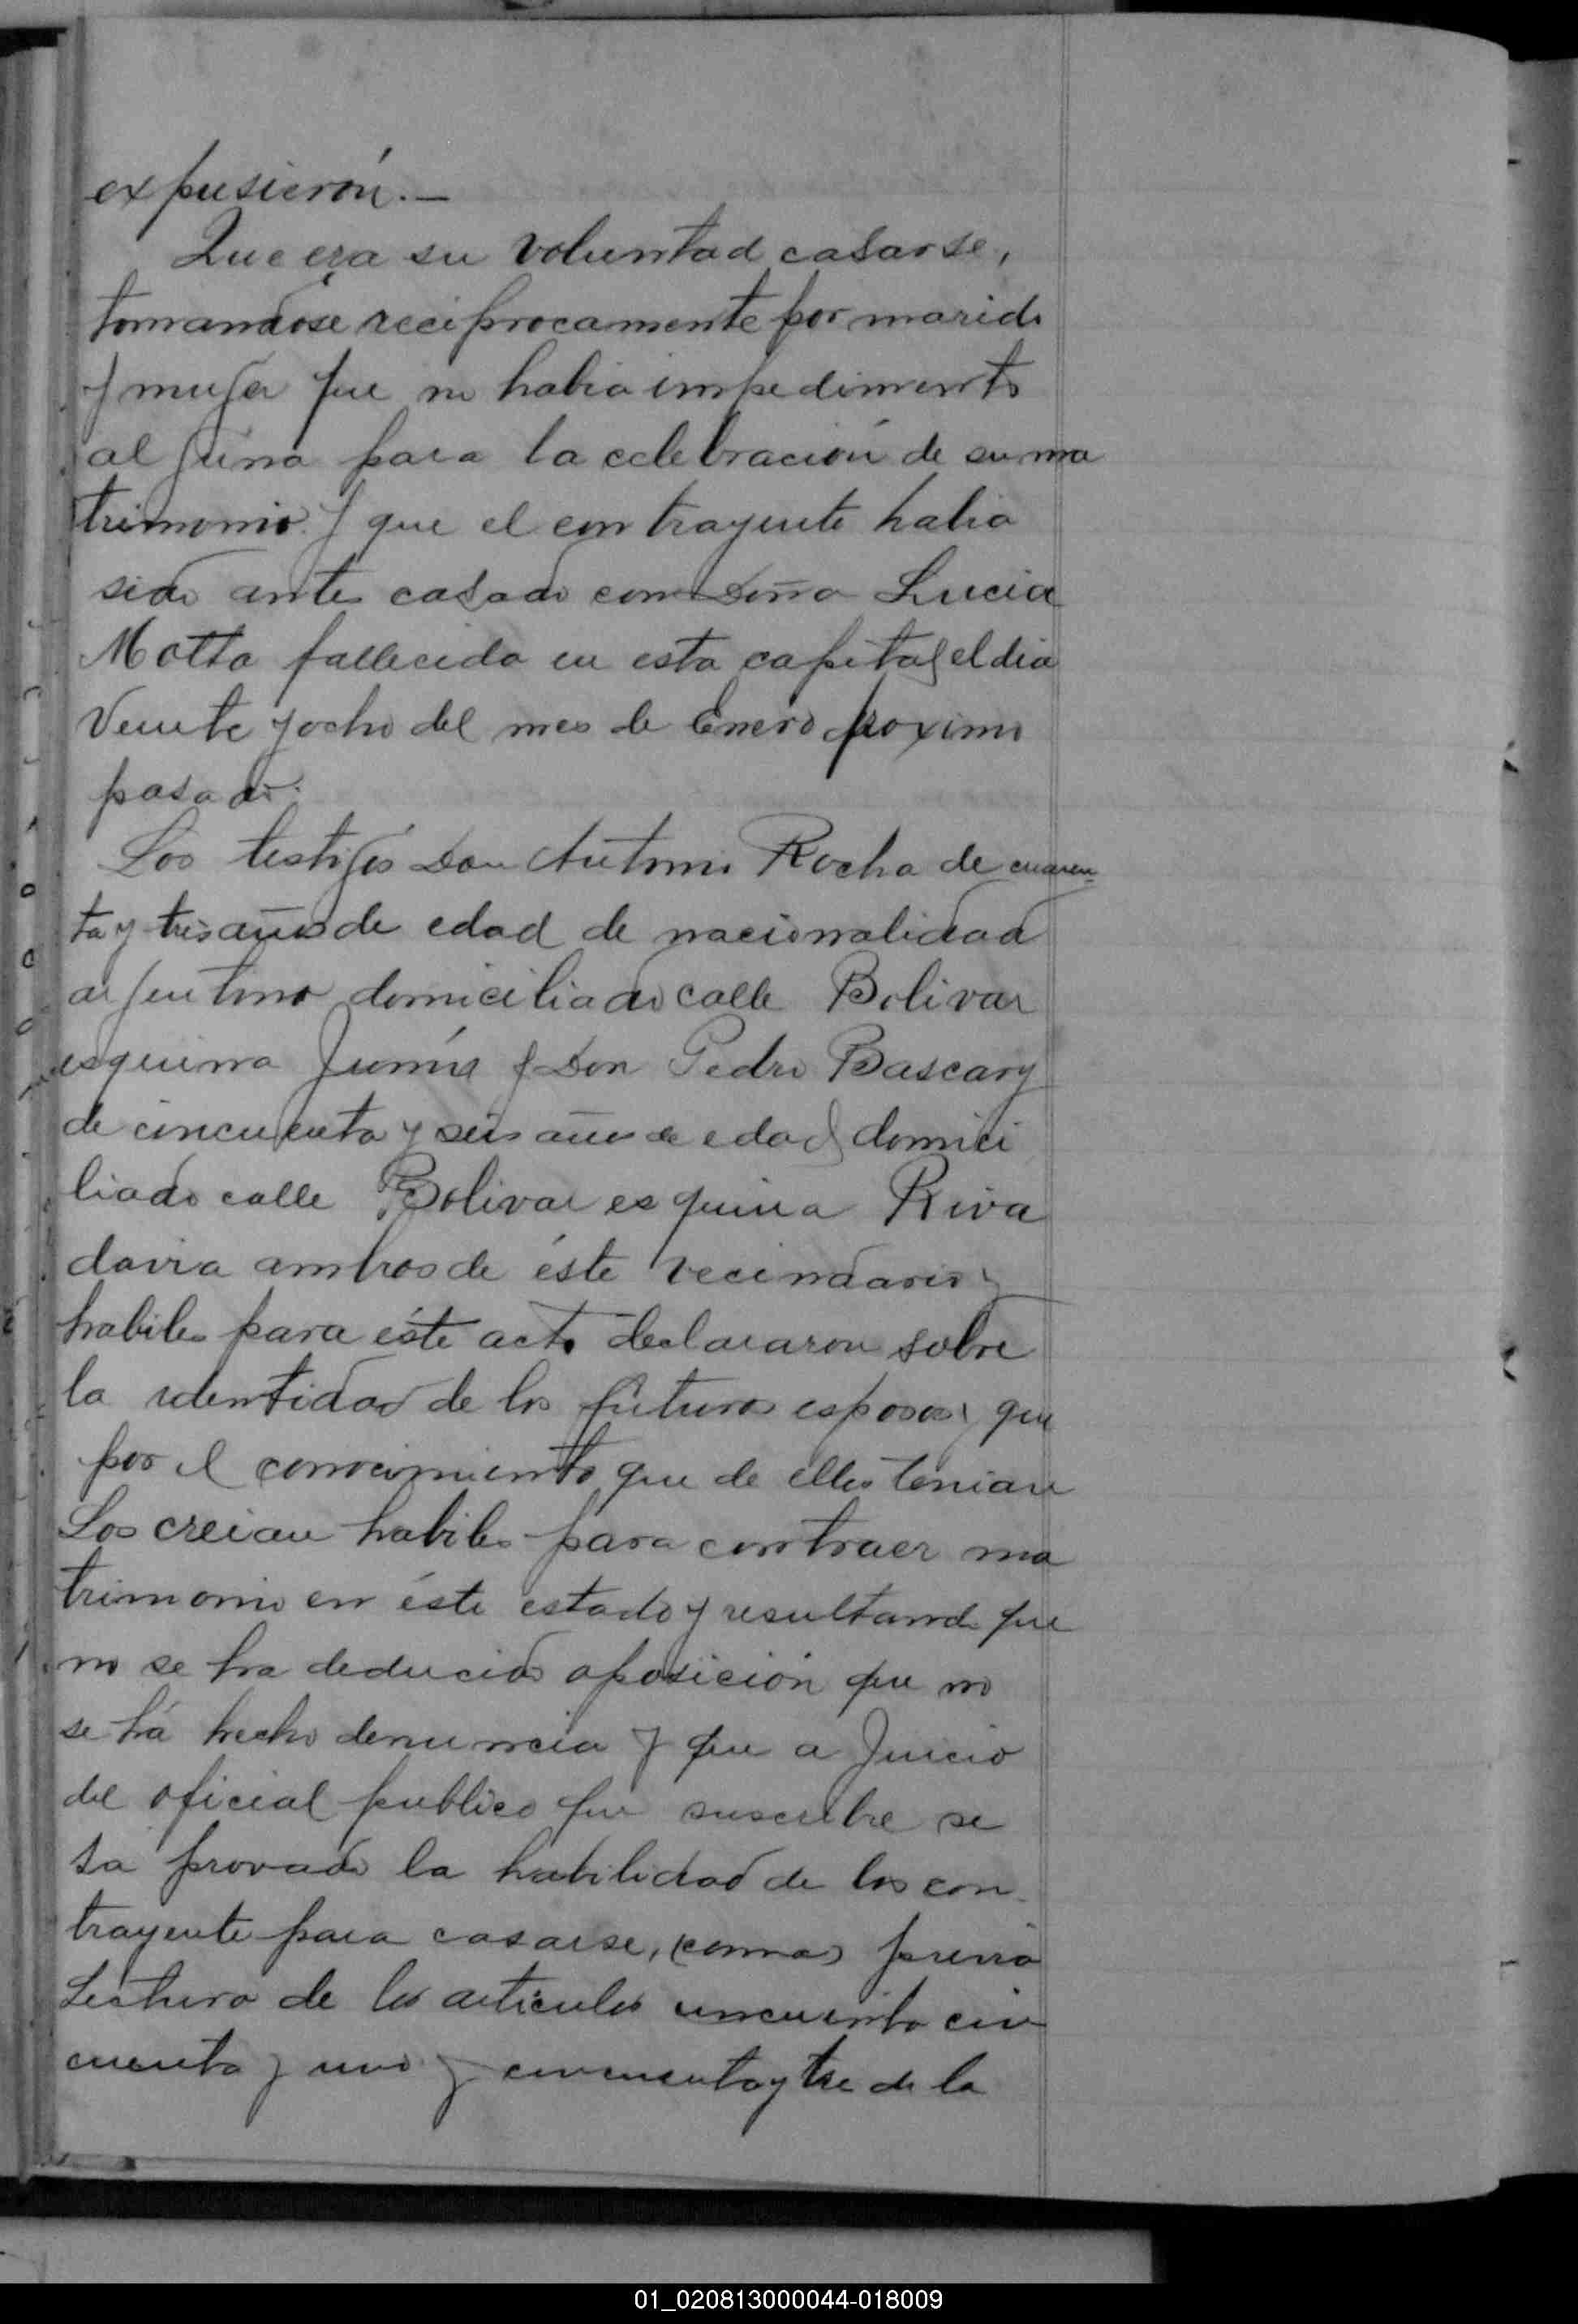 expusierón.—
Que era su voluntad casarse,
tomandose reciprocamente por marido
y mujer que no habia impedimento
alguno para la celebración de su ma
trimonio y que el contrayente habia
sido antes casado con Doña Lucia
Motta fallecida en esta capital el dia
Veinte y ocho del mes de Enero proximo
pasado.
Los testigos Don Antonio Rocha de cuaren-
ta y tres años de edad de nacionalidad
argentino domiciliado calle Bolivar
esquina Junín y Don Pedro Bascary
de cincuenta y seis años de edad domici
liado calle Bolivar esquina Riva
davia ambos de éste vecindario y
habiles para éste acto declararon sobre
la identidad de los futuros esposos y que
por el conocimiento que de ellos tenian
Los creian habiles para contraer ma
trimonio en éste estado y resultando que
no se ha deducido oposición que no
se há hecho denuncia y que a Juicio
del oficial publico que suscribe se
ta provado la habilidad de los con-
trayente para casarse, (coma) previa
Lectura de los articulos cincuenta cin
cuenta y uno y cincuenta y tre de la
01_020813000044-018009